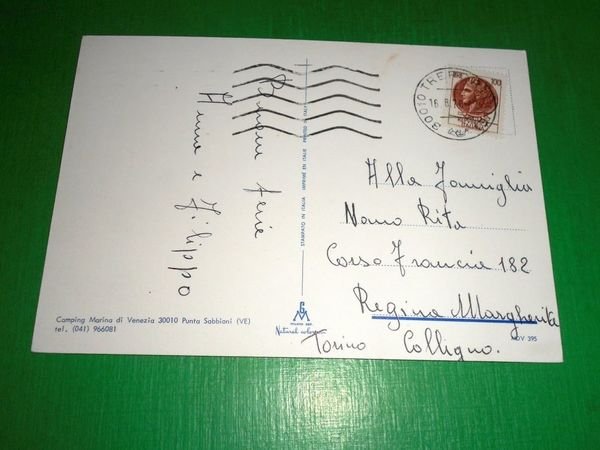 Buone ferie
Anna e Filippo
Camping Marina di Venezia 30010 Punta Sabbioni (VE)
tel. (041) 966081
STAMPATO IN ITALIA IMPRIMÉ EN ITALIE PRINTED IN ITALY
MILANO
Natural
30010 TRE
16.8
100
Alla Famiglia
Nano Rita
Corso Francia 182
Regina Margherita
Torino Collegno.
NOV 395